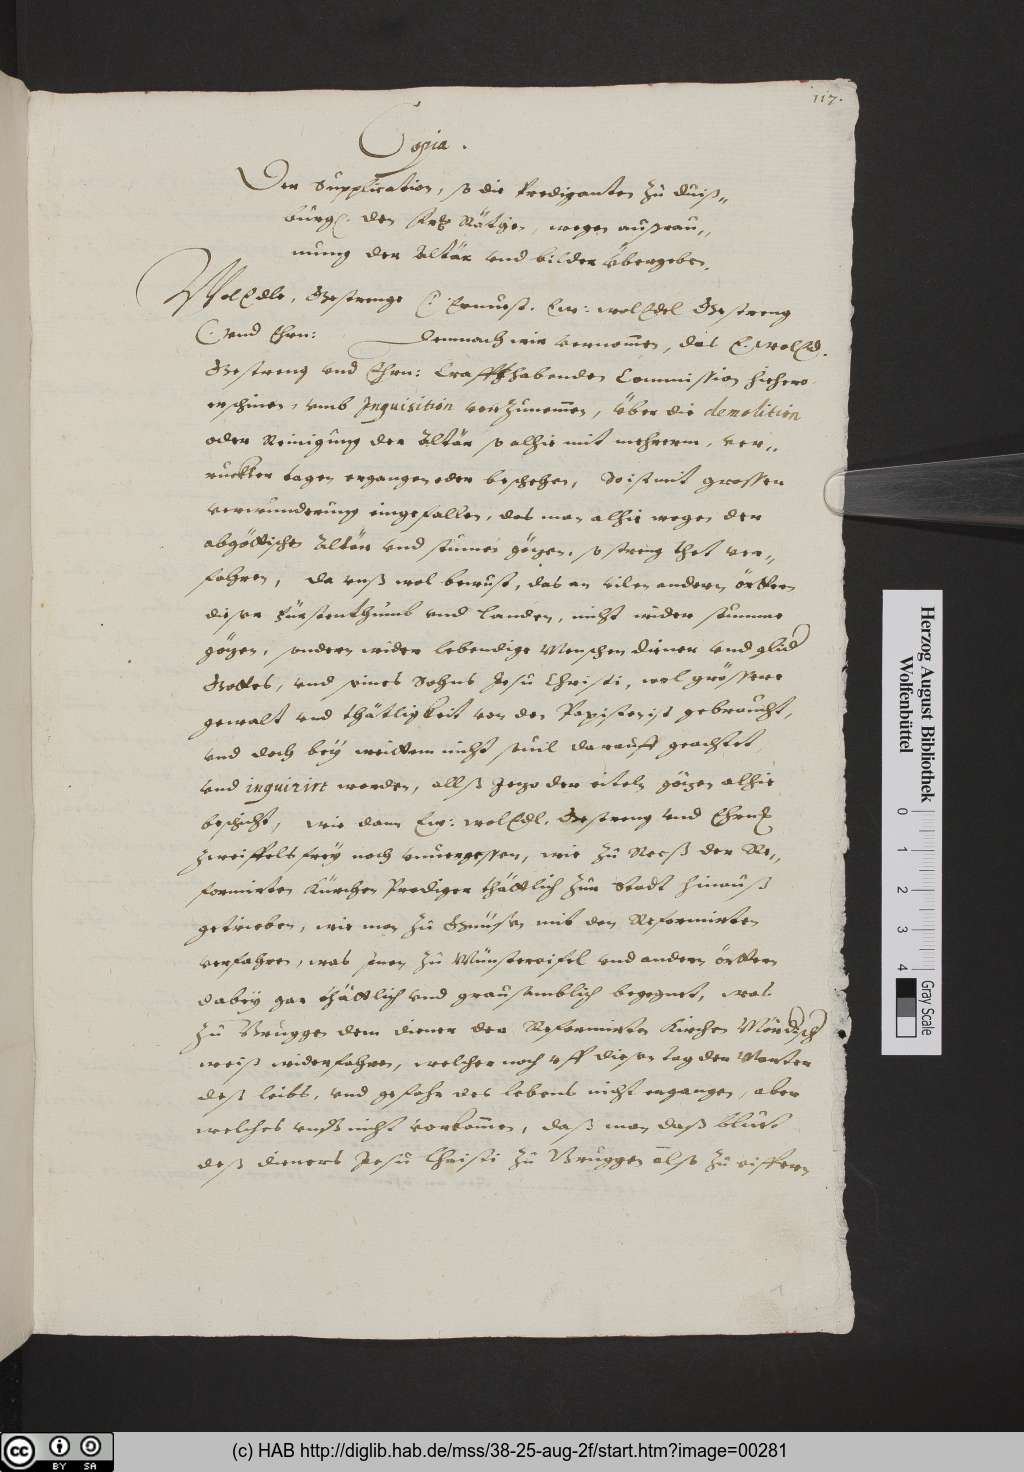 117.
Copia.
Der Supplication, so die Prediganten zu duiß„
burg den Rätgen, wegen außrau„
mung der Altär und bilder übergeben.
WolEdle, Gestrenge Ernuest. Ew: wolEdel Gestreng
und Ehrn: Demnach wir vernommen, das E. wolEd.
Gestreng und Ehrn: Crafft habenden Commission hiehero
erschinen, umb Inquisition vorzunemmen, über die demolition
oder Reinigung der Altär so alhie mit mehrerm, ver„
ruckter tagen ergangen oder beschehen, So ist mit grossen
verwunderung eingefallen, das man alhie wegen der
abgöttischen Altär und stumen götzen, so streng thet ver„
fahren, da unß wol bewust, das an vilen andern örttern
dieser Fürstenthumb und Landen, nicht wider stumme
götzen, sondern wider lebendige Menschen diener und glider
Gottes, und seines Sohns Jesu Christi, wol grössere
gewalt und thätligkeit von den Papisten ist gebraucht,
und doch bey weittem nicht sovil darauff geachtet
und inquirirt worden, allß Jezo der eiteln götzen alhie
beschicht, wie dann Ew: wolEdl. Gestreng und Ehrnf
zweiffels frey noch unvergessen, wie zu Reeß der Re„
formirten Kürchen Prediger thättlich zur Stadt hinauß
getrieben, wie man zu mit den Reformirten
verfahren, was Inen zu Münstereifel und andern örttern
dabey gar thättlich und grausamblich begegnet, was
zu Bruggen dem diener der Reformirten Kirchen Mördisch
weiß widerfahren, welcher noch uff diesen tag der Marter
deß leibs, und gefahr des lebens nicht ergangen, aber
welches unß nicht vorkommen, daß man daß bluet
deß dieners Jesu Christi zu Bruggen also zu eiffern
Herzog August Bibliothek
Wolfenbüttel
0 1 2 3 4
Gray Scale
cc BY SA
(c) HAB http://diglib.hab.de/mss/38-25-aug-2f/start.htm?image=00281